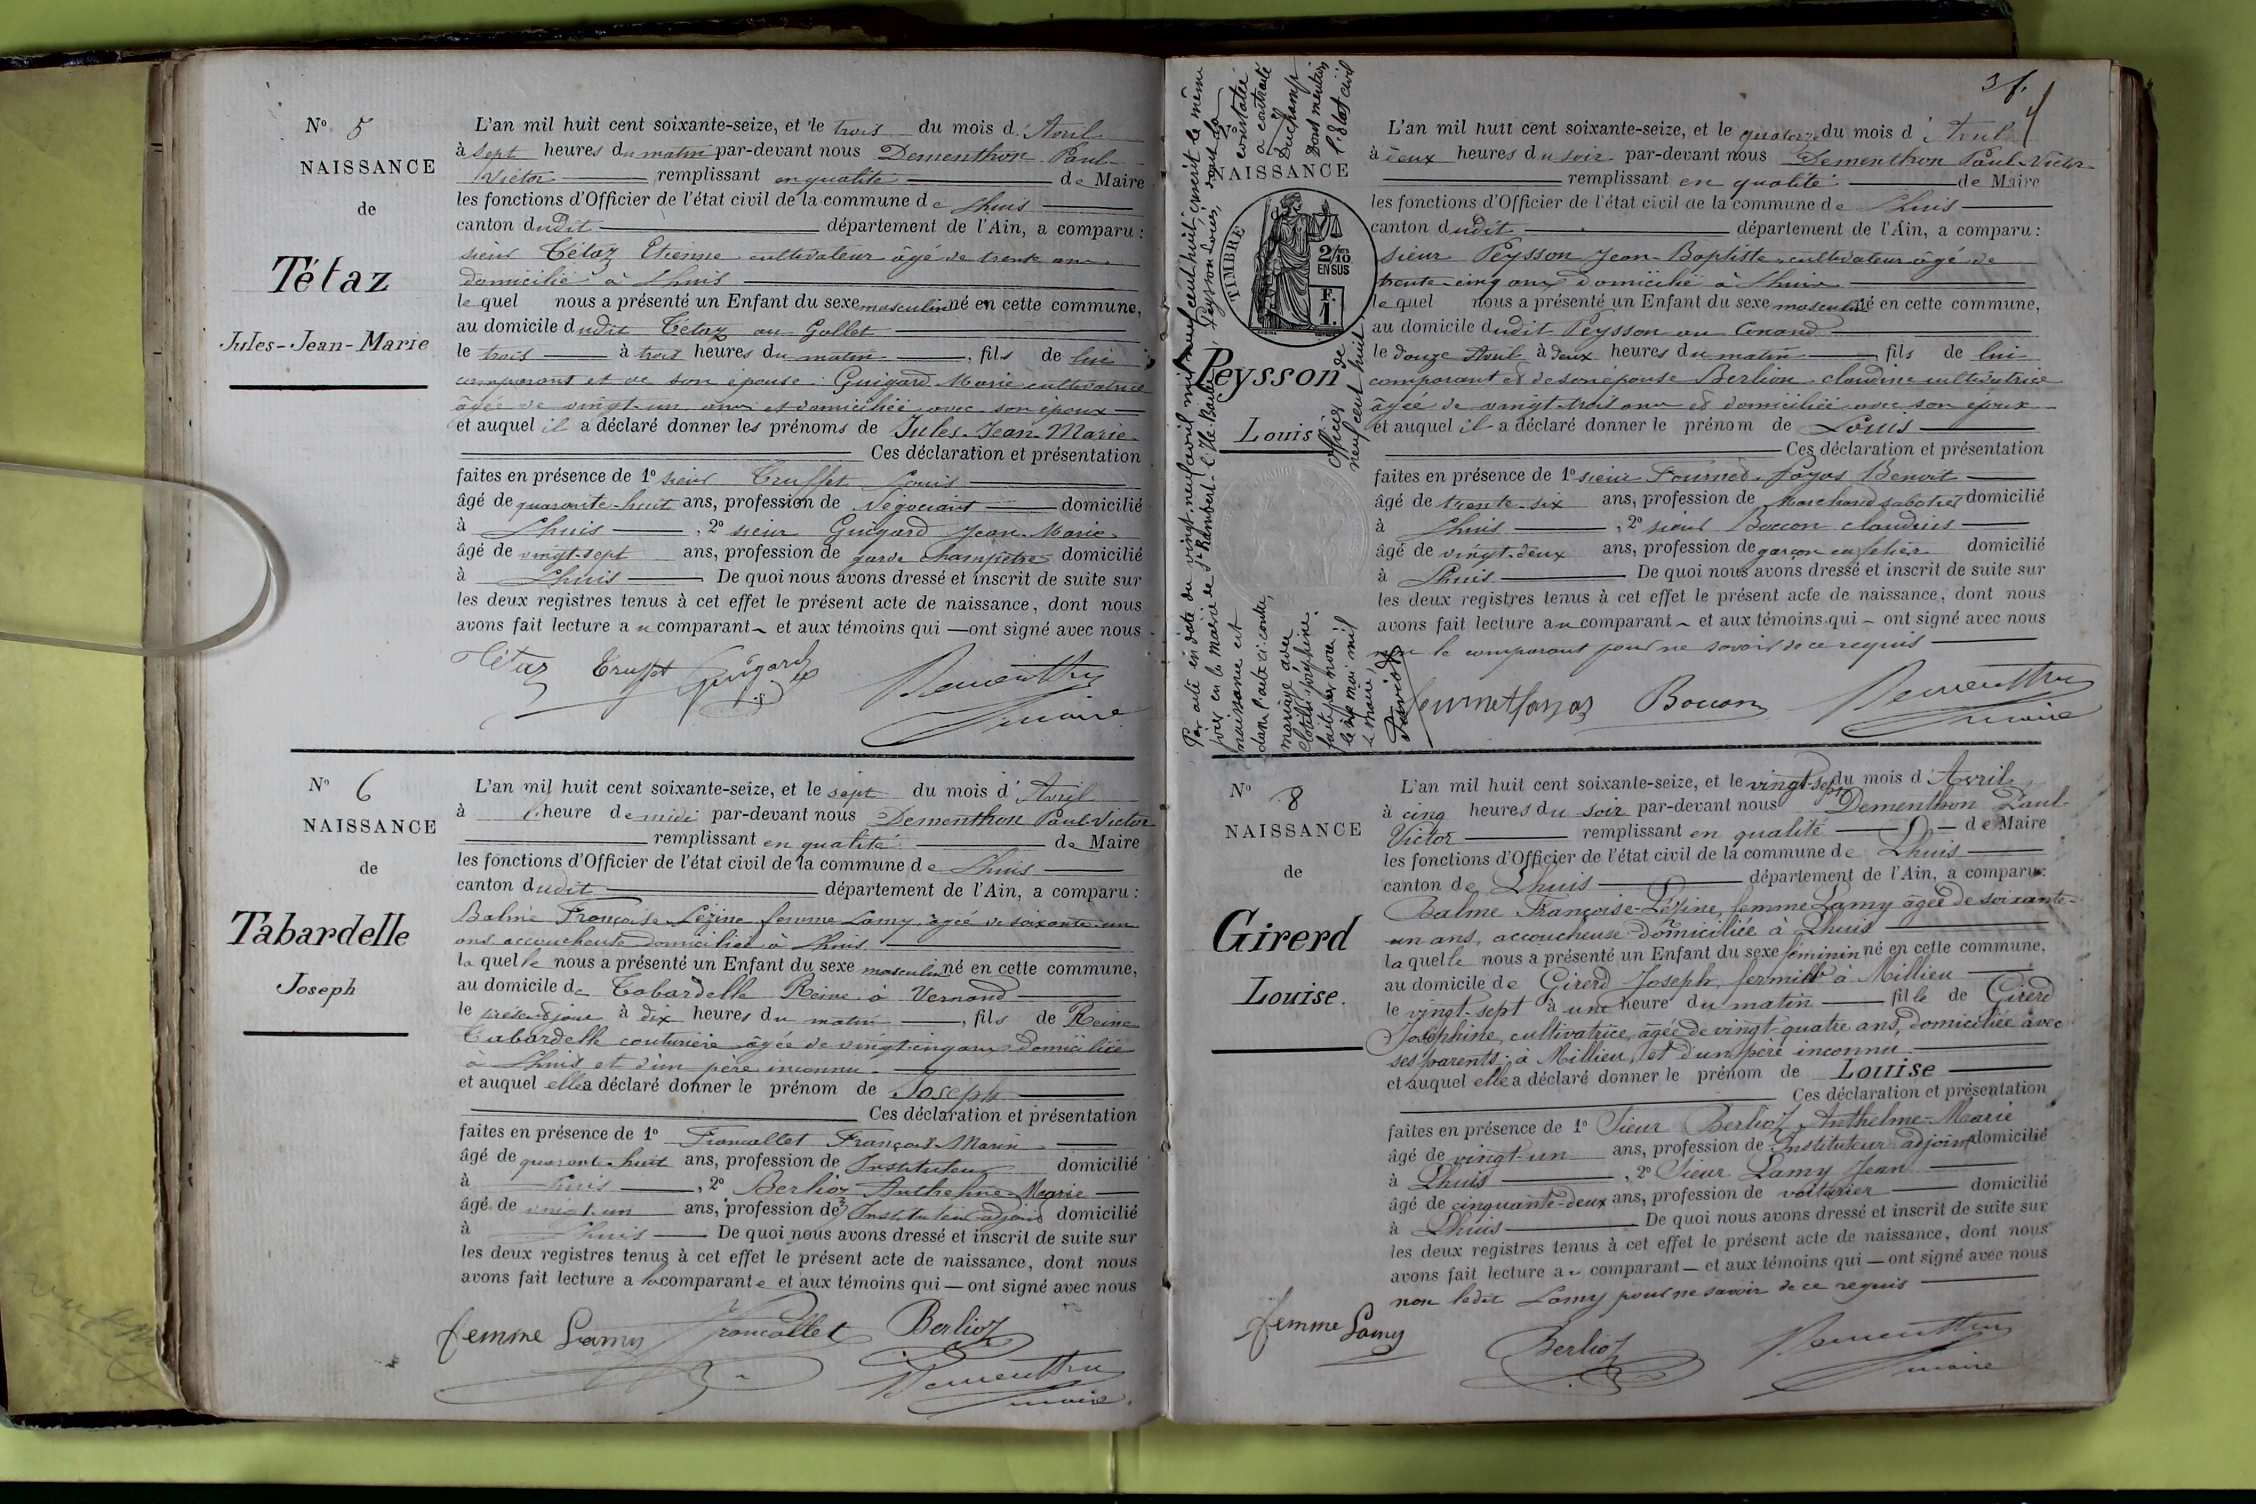 Nº 5
NAISSANCE
de
Tétaz
Jules-Jean-Marie
L'an mil huit cent soixante-seize, et le trois du mois d' Avril
à sept heures du matin par-devant nous Dementhon Paul-
Victor remplissant en qualité de Maire
les fonctions d'Officier de l'état civil de la commune de Lhuis
canton dudit département de l'Ain, a comparu :
sieur Tétaz Etienne cultivateur âgé de trente ans
domicilié à Lhuis
lequel nous a présenté un Enfant du sexe masculin né en cette commune,
au domicile dudit Tétaz au Gollet
le trois à trois heures du matin, fils de lui
comparant et de son épouse Guigard Marie cultivatrice
âgée de vingt-un ans et domiciliée avec son époux
et auquel il a déclaré donner les prénoms de Jules-Jean-Marie
Ces déclaration et présentation
faites en présence de 1º sieur Truffet Louis
âgé de quarante-huit ans, profession de Négociant domicilié
à Lhuis, 2º sieur Guigard Jean-Marie
âgé de vingt-sept ans, profession de garde champêtre domicilié
à Lhuis De quoi nous avons dressé et inscrit de suite sur
les deux registres tenus à cet effet le présent acte de naissance, dont nous
avons fait lecture au comparant et aux témoins qui ont signé avec nous
Tétaz Truffet Guigard Dementhon
maire
Nº 6
NAISSANCE
de
Tabardelle
Joseph
L'an mil huit cent soixante-seize, et le sept du mois d' Avril
à l'heure de midi par-devant nous Dementhon Paul-Victor
remplissant en qualité de Maire
les fonctions d'Officier de l'état civil de la commune de Lhuis
canton dudit département de l'Ain, a comparu :
Balme Françoise Lézine femme Lamy âgée de soixante-un
ans accoucheuse domiciliée à Lhuis
laquelle nous a présenté un Enfant du sexe masculin né en cette commune,
au domicile de Tabardelle Reine à Vernand
le présent jour à dix heures du matin, fils de Reine
Tabardelle couturière âgée de vingt-cinq ans domiciliée
à Lhuis et d'un père inconnu
et auquel elle a déclaré donner le prénom de Joseph
Ces déclaration et présentation
faites en présence de 1º Francallet François-Marin
âgé de quarante-huit ans, profession de Instituteur domicilié
à Lhuis, 2º Berlioz Anthelme-Marie
âgé de vingt-un ans, profession de Instituteur adjoint domicilié
à Lhuis De quoi nous avons dressé et inscrit de suite sur
les deux registres tenus à cet effet le présent acte de naissance, dont nous
avons fait lecture a la comparante et aux témoins qui — ont signé avec nous
femme Lamy Francallet Berlioz
Dementhon
maire
Par acte en date du vingt-neuf avril mil neuf cent huit, inséré le même
jour en la mairie de St Rambert-l'Ile-Barbe, Peysson Louis, dont la
naissance est constatée
dans l'acte ci-contre, a contracté
mariage avec Duchamp
Clotilde Joséphine. Dont mention
faite par nous officier de l'état civil
le six mai mil neuf cent huit
Le maire,
NAISSANCE
TIMBRE
2/10
EN SUS
F.
1.
Peysson
Louis
L'an mil huit cent soixante-seize, et le quatorze du mois d' Avril
à deux heures du soir par-devant nous Dementhon Paul-Victor
remplissant en qualité de Maire
les fonctions d'Officier de l'état civil de la commune de Lhuis
canton dudit département de l'Ain, a comparu :
sieur Peysson Jean-Baptiste cultivateur âgé de
trente-cinq ans domicilié à Lhuis
lequel nous a présenté un Enfant du sexe masculin né en cette commune,
au domicile dudit Peysson au Conand
le douze Avril à deux heures du matin, fils de lui
comparant et de son épouse Berlion claudine cultivatrice
âgée de vingt-trois ans et domiciliée avec son époux
et auquel il a déclaré donner le prénom de Louis
Ces déclaration et présentation
faites en présence de 1º sieur Fournet-Fayas Benoit
âgé de trente-six ans, profession de marchand sabotier domicilié
à Lhuis, 2º sieur Boccon claudius
âgé de vingt-deux ans, profession de garçon domicilié
à Lhuis De quoi nous avons dressé et inscrit de suite sur
les deux registres tenus à cet effet le présent acte de naissance, dont nous
avons fait lecture au comparant et aux témoins qui — ont signé avec nous
non le comparant pour ne savoir de ce requis
Fournetfayas Boccon Dementhon
maire
Nº 8
NAISSANCE
de
Girerd
Louise.
L'an mil huit cent soixante-seize, et le vingt-sept du mois d' Avril
à cinq heures du soir par-devant nous Dementhon Paul-
Victor remplissant en qualité de Maire
les fonctions d'Officier de l'état civil de la commune de Lhuis
canton de Lhuis département de l'Ain, a comparu :
Balme Françoise-Lézine, femme Lamy âgée de soixante-
un ans, accoucheuse domiciliée à Lhuis
laquelle nous a présenté un Enfant du sexe féminin né en cette commune,
au domicile de Girerd Joseph, fermier à Millieu
le vingt-sept à une heure du matin fille de Girerd
Joséphine, cultivatrice, âgée de vingt-quatre ans, domiciliée avec
ses parents à Millieu, et d'un père inconnu
et auquel elle a déclaré donner le prénom de Louise
Ces déclaration et présentation
faites en présence de 1º Sieur Berlioz Anthelme-Marie
âgé de vingt-un ans, profession de Instituteur adjoint domicilié
à Lhuis, 2º Sieur Lamy Jean
âgé de cinquante-deux ans, profession de voiturier domicilié
à Lhuis De quoi nous avons dressé et inscrit de suite sur
les deux registres tenus à cet effet le présent acte de naissance, dont nous
avons fait lecture a comparant — et aux témoins qui — ont signé avec nous
non ledit Lamy pour ne savoir de ce requis
femme Lamy Berlioz Dementhon
maire